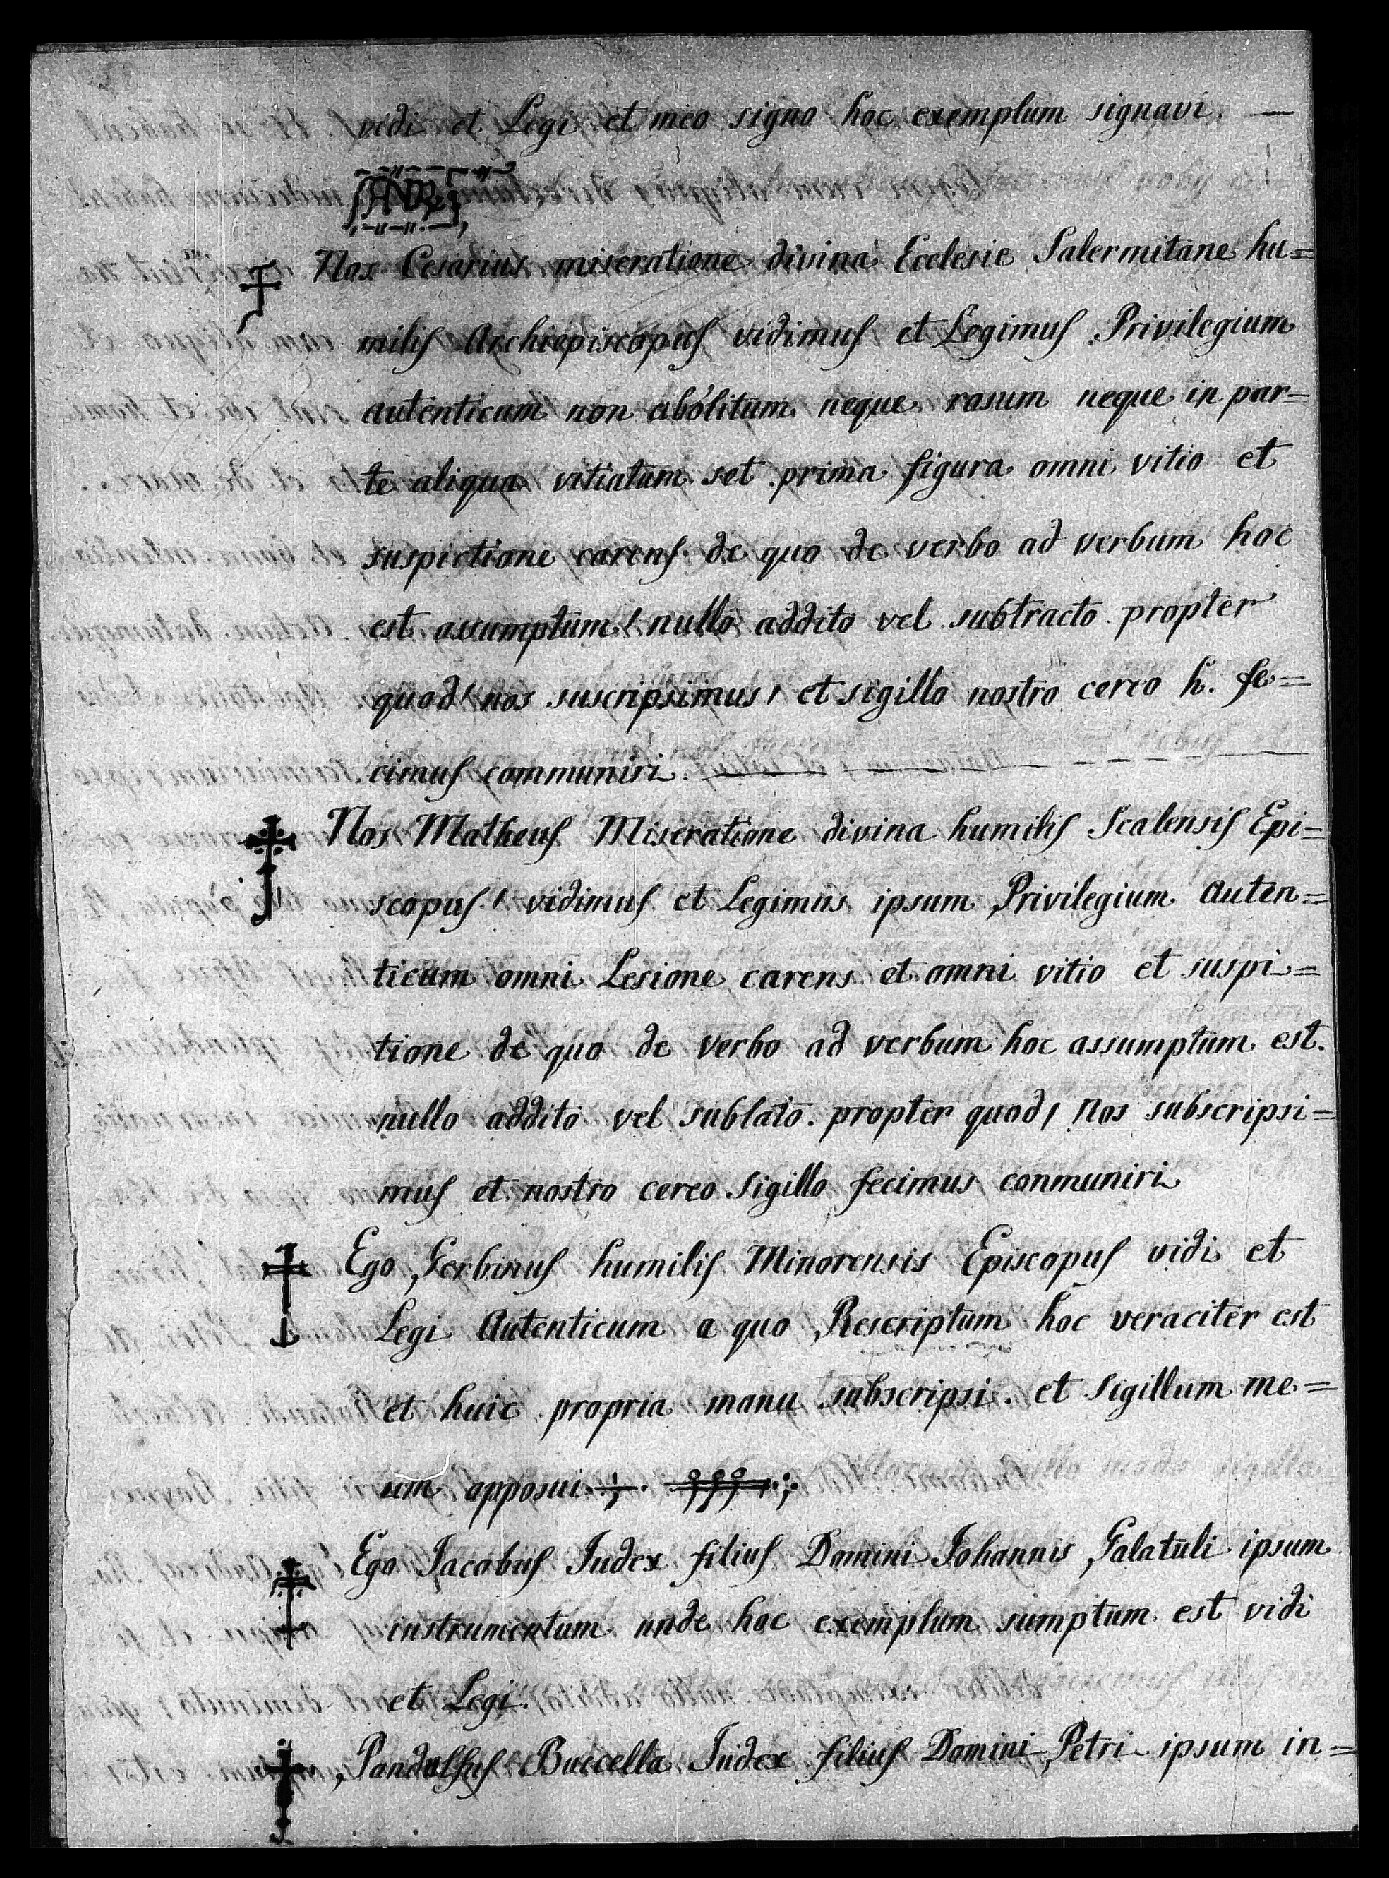 vidi et Legi et meo signo hoc exemplum signavi. —
Nos Cesarius miseratione divina Ecclesie Salermitane hu=
milis Archiepiscopus vidimus et Legimus Privilegium
autenticum non abolitum neque rasum neque in par=
te aliqua vitiatum set prima figura omni vitio et
suspictione carens de quo de verbo ad verbum hoc
est assumptum / nullo addito vel subtracto propter
quod / nos suscripsimus / et sigillo nostro cereo h. fe=
cimus communiri.
Nos Matheus Miseratione divina humilis Scalensis Epi=
scopus / vidimus et Legimus ipsum Privilegium auten=
ticum omni Lesione carens et omni vitio et suspi=
tione de quo de verbo ad verbum hoc assumptum est.
nullo addito vel sublato. propter quod / nos subscripsi=
mus et nostro cereo sigillo fecimus conmuniri
Ego Gerbinus humilis Minorensis Episcopus vidi et
Legi Autenticum a quo Rescriptum hoc veraciter est
et huic propria manu subscripsi. et Sigillum me=
um apposui
Ego Jacobus Judex filius Domini Johannis Galatuli ipsum
instrumentum unde hoc exemplum sumptum est vidi
et Legi.
Pandulfus Buccella Judex filius Domini Petri ipsum in=